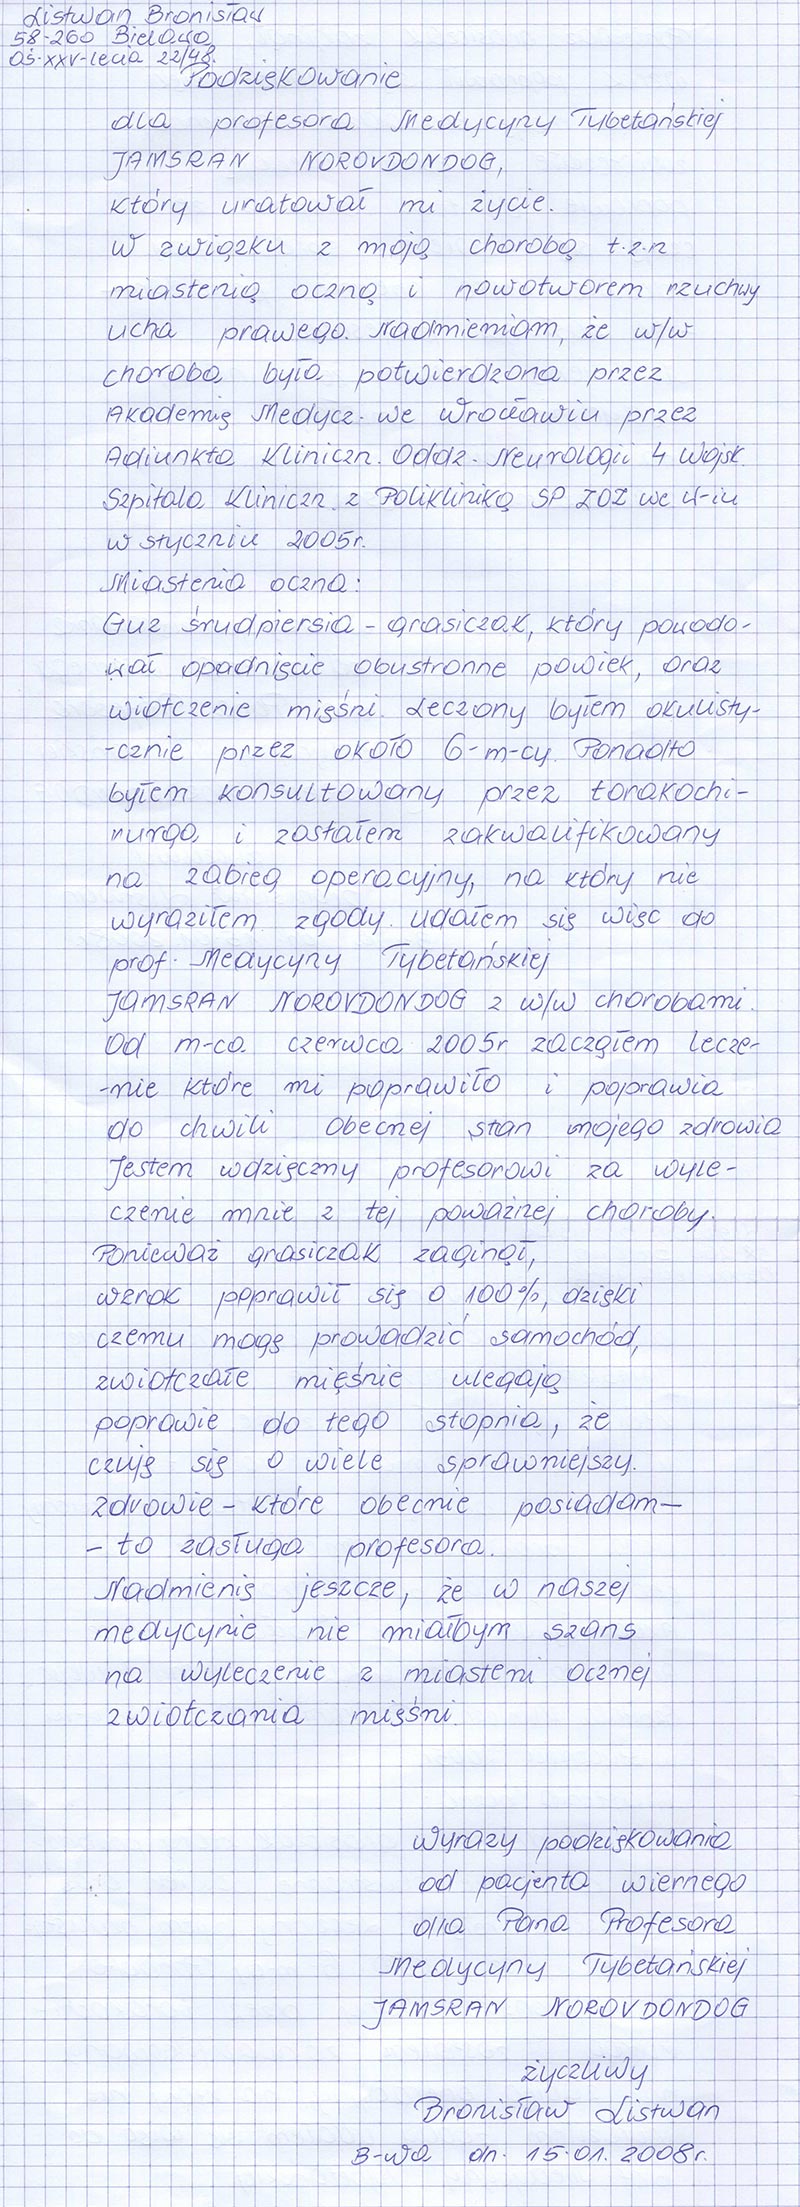 Listwan Bronisław
58-260 Bielawa
Oś-XXV-lecia 22/48.
Podziękowanie
dla profesora Medycyny Tybetańskiej
JAMSRAN NOROVDONDOG,
który uratował mi życie.
W związku z moją chorobą t.z.n
miastenią oczną i nowotworem rzuchwy
ucha prawego. Nadmieniam, że w/w
choroba była potwierdzona przez
Akademię Medycz. we Wrocławiu przez
Adiunkta Kliniczn. Oddz. Neurologii 4 Wojsk.
Szpitala Kliniczn. z Polikliniką SP ZOZ we W-iu
w styczniu 2005r.
Miastenia oczna:
Guz śrudpiersia - grasiczak, który powodo-
wał opadnięcie obustronne powiek, oraz
wiotczenie mięśni. Leczony byłem okulisty-
-cznie przez około 6-m-cy. Ponadto
byłem konsultowany przez torakochi-
rurga i zostałem zakwalifikowany
na zabieg operacyjny, na który nie
wyraziłem zgody. Udałem się więc do
prof. Medycyny Tybetańskiej
JAMSRAN NOROVDONDOG z w/w chorobami.
Od m-ca czerwca 2005r zacząłem lecze-
-nie które mi poprawiło i poprawia
do chwili obecnej stan mojego zdrowia
Jestem wdzięczny profesorowi za wyle-
czenie mnie z tej poważnej choroby.
Ponieważ grasiczak zaginął,
wzrok poprawił się o 100%, dzięki
czemu mogę prowadzić samochód,
zwiotczałe mięśnie ulegają
poprawie do tego stopnia, że
czuję się o wiele sprawniejszy.
Zdrowie - które obecnie posiadam -
- to zasługa profesora.
Nadmienię jeszcze, że w naszej
medycynie nie miałbym szans
na wyleczenie z miasteni ocznej
zwiotczania mięśni.
Wyrazy podziękowania
od pacjenta wiernego
dla Pana Profesora
Medycyny Tybetańskiej
JAMSRAN NOROVDONDOG
życzliwy
Bronisław Listwan
B-wa dn. 15.01.2008r.